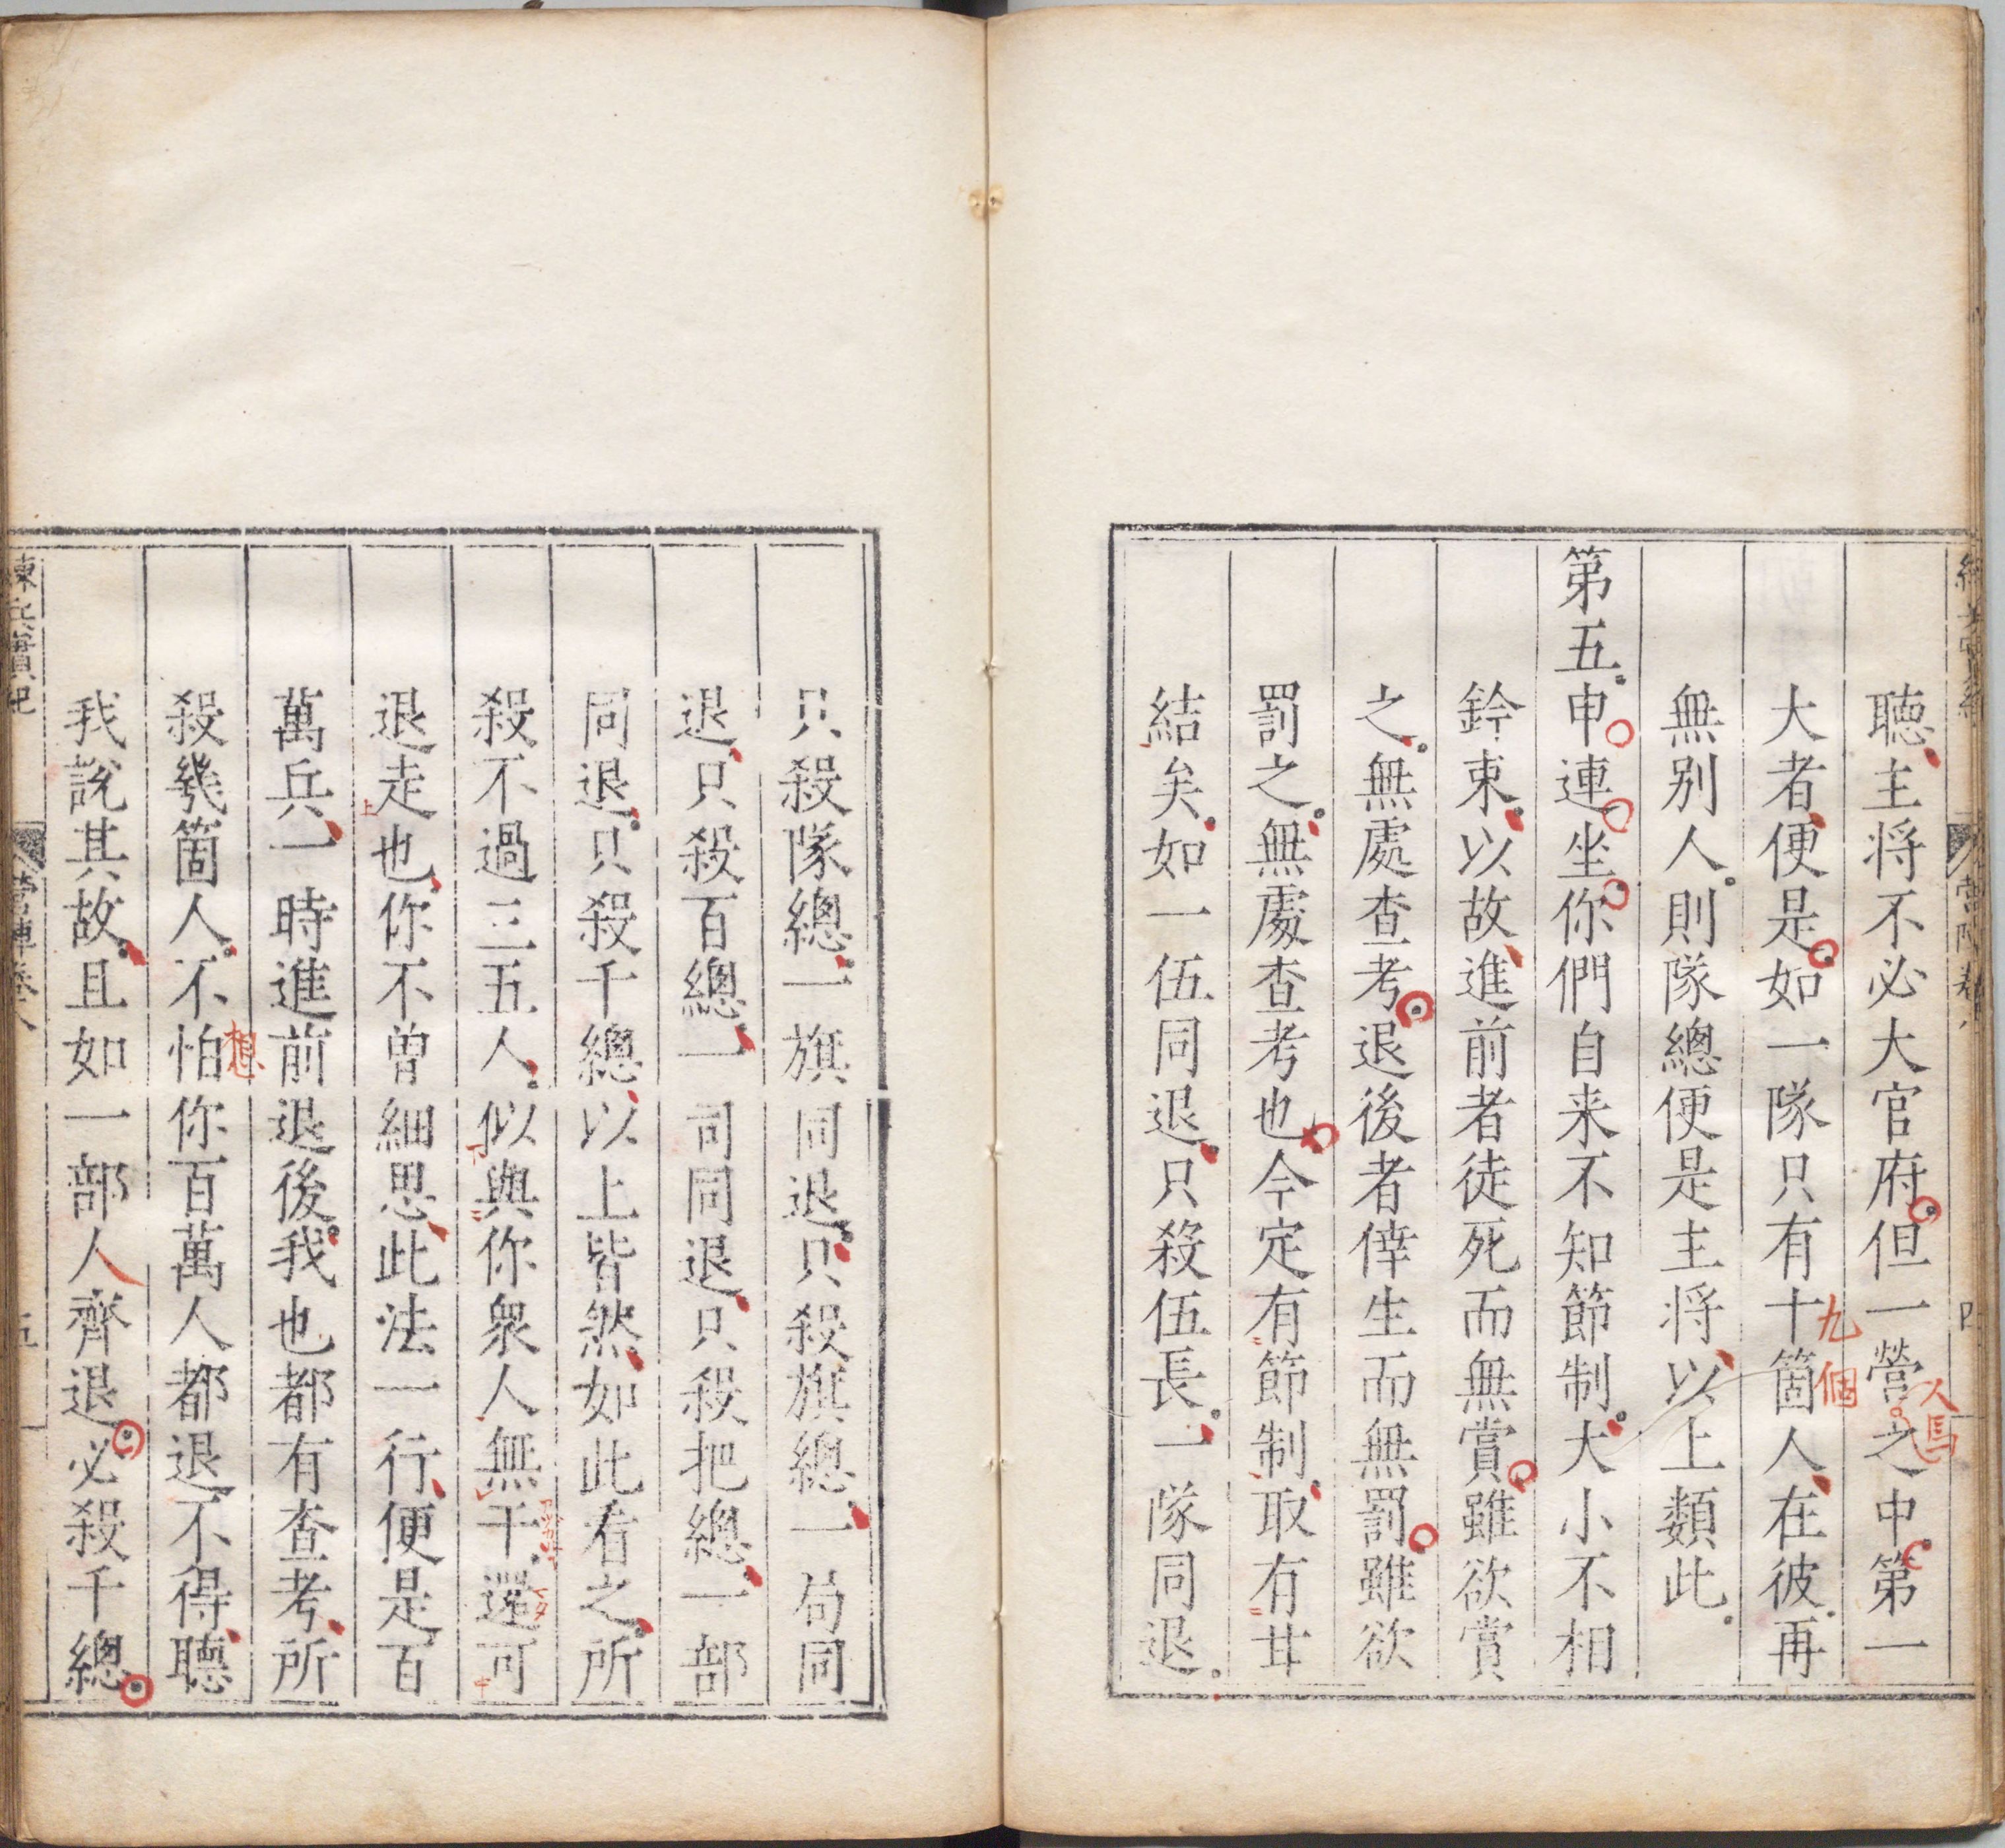 聽主将不必大官府但一營之中第一
人馬
大者便是如一隊只有十箇人在彼再
九個
無别人則隊總便是主将以上類此
第五申連坐你們自来不知節制大小不相
鈐束以故進前者徒死而無賞雖欲賞
之無處查考退後者倖生而無罰雖欲
罰之無處查考也今定有節制取有甘
結矣如一伍同退只殺伍長一隊同退
只殺隊總一旗同退只殺旗總一局同
退只殺百總一司同退只殺把總一部
同退只殺千總以上皆然如此看之所
殺不過三五人似與你衆人無干還可
退走也你不曾細思此法一行便是百
萬兵一時進前退後我也都有查考所
殺幾箇人不怕你百萬人都退不得聽
想
我說其故且如一部人齊退必殺千總
練兵實紀
營陣卷八
五